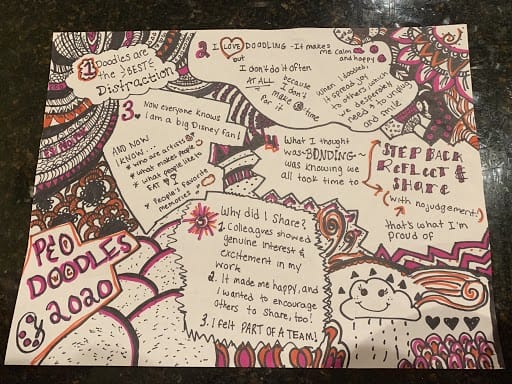 1 Doodles are
the BEST
Distraction
2 I LOVE DOODLING - It makes
me calm
and happy
but
I don't do it often
AT ALL because
I don't
make time
for it
When I doodled
it spread joy
to others which
we desperately
need: to laugh
and smile
3. Now everyone knows
I am a big Disney fan!
AND NOW
I KNOW...
who are artists
what makes people
what people like to
EAT
People's favorite
memories
4 What I thought
was BONDING
was knowing we
all took time to
STEP BACK
REFLECT &
SHARE
(with no judgement!)
that's what I'm
proud of
Why did I Share?
1. Colleagues showed
genuine interest &
excitement in my
work
2. It made me happy, and
I wanted to encourage
others to share, too!
3. I felt PART OF A TEAM!
DOODLES
2020